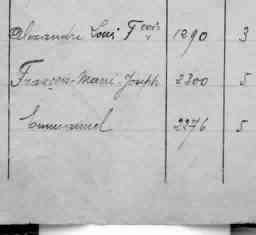 Alexandre Louis Fçois 1290 3
François-Marie-Joseph 2300 5
Emmanuel 2276 5